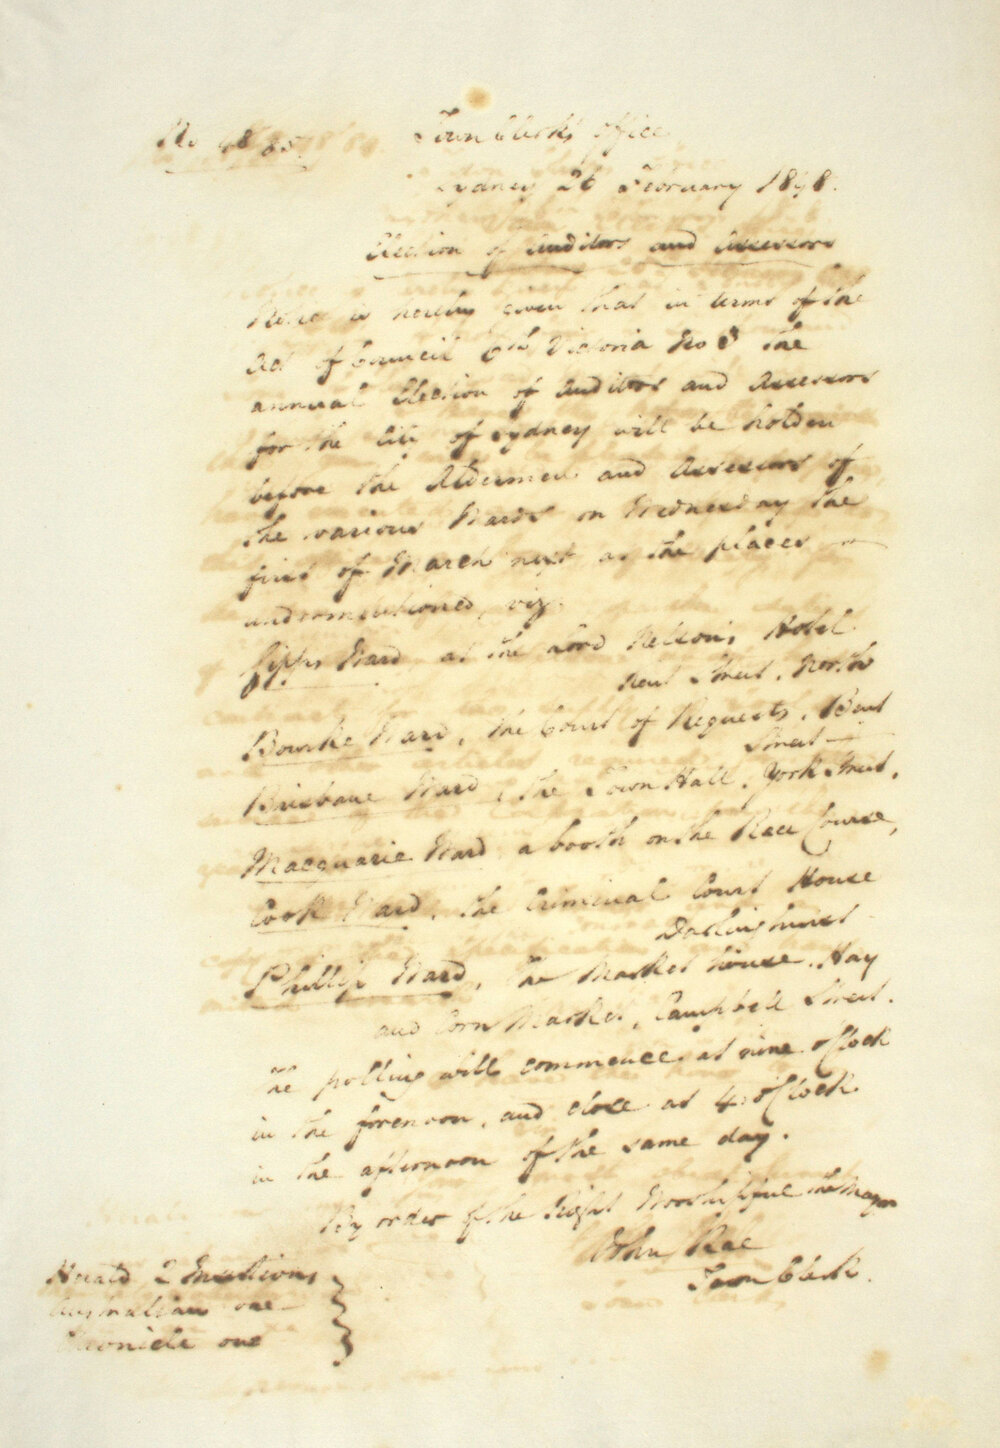 No 48/85.
Town Clerk's Office
Sydney 26 February 1848.
Election of Auditors and Assessors
Notice is hereby given that in terms of the
Act of Council 6th Victoria No 3 the
annual Election of Auditors and Assessors
for the City of Sydney will be holden
before the Aldermen and Assessors of
the various Wards on Wednesday the
first of March next at the places
undermentioned, viz.
Gipps Ward at the Lord Nelson's Hotel
Kent Street. North
Bourke Ward, the Court of Requests, Bent
Street
Brisbane Ward, the Town Hall, York Street.
Macquarie Ward a booth on the Race Course,
Cook Ward, the Criminal Court House
Darlinghurst
Phillip Ward, the Market house. Hay
and Corn Market, Campbell Street.
The polling will commence at nine o'Clock
in the forenoon, and close at 4 o'Clock
in the afternoon of the same day.
By order of the Right Worshipful the Mayor
John Rae
Town Clerk.
Herald 2 Insertions
Australian one
Chronicle one